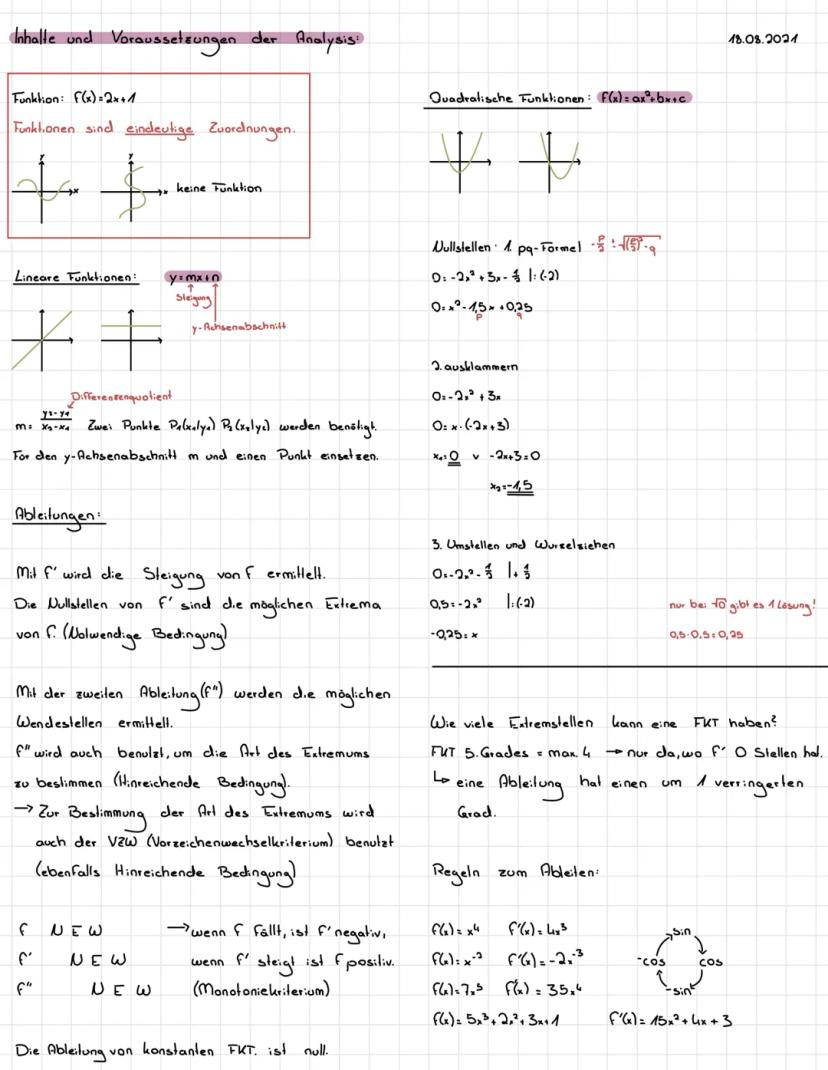 Inhalte und Voraussetzungen der Analysis:
18.08.2021
Funktion: f(x)=2x+1
Funktionen sind eindeutige Zuordnungen.
y
x
y
x
keine Funktion
Lineare Funktionen: y=mx+n
Steigung
y-Achsenabschnitt
Differenzenquotient
m= (y₂-y₁)/(x₂-x₁) Zwei Punkte P₁(x₁/y₁) P₂(x₂/y₂) werden benötigt.
Für den y-Achsenabschnitt m und einen Punkt einsetzen.
Ableitungen:
Mit f' wird die Steigung von f ermittelt.
Die Nullstellen von f' sind die möglichen Extrema
von f. (Notwendige Bedingung)
Mit der zweiten Ableitung (f'') werden die möglichen
Wendestellen ermittelt.
f'' wird auch benutzt, um die Art des Extremums
zu bestimmen (Hinreichende Bedingung).
→ Zur Bestimmung der Art des Extremums wird
auch der VZW (Vorzeichenwechselkriterium) benutzt
(ebenfalls Hinreichende Bedingung)
f N E W → wenn f fällt, ist f' negativ,
f' N E W wenn f' steigt ist f positiv.
f'' N E W (Monotoniekriterium)
Die Ableitung von konstanten FKT. ist null.
Quadratische Funktionen: f(x)=ax²+bx+c
Nullstellen: 1. pq-Formel -p/2 ± √((p/2)²-q)
0=-2x²+3x-½ |:(-2)
0=x²-1,5x+0,25
p q
2. ausklammern
0=-2x²+3x
0=x·(-2x+3)
x₁=0 v -2x+3=0
x₂=-1,5
3. Umstellen und Wurzelziehen
0=-2x²-½ |+½
0,5=-2x² |:(-2)
-0,25=x
nur bei √0 gibt es 1 Lösung!
0,5·0,5=0,25
Wie viele Extremstellen kann eine FKT haben?
FKT 5. Grades = max. 4 → nur da, wo f' 0 Stellen hat.
↳ eine Ableitung hat einen um 1 verringerten
Grad.
Regeln zum Ableiten:
f(x)=x⁴ f'(x)=4x³
f(x)=x⁻² f'(x)=-2x⁻³
f(x)=7x⁵ f'(x)=35x⁴
f(x)=5x³+2x²+3x+1 f'(x)=15x²+4x+3
sin
-cos cos
-sin